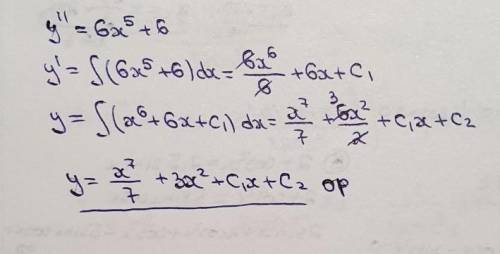 y'' = 6x⁵ + 6
y' = ∫(6x⁵ + 6) dx = 6x⁶/6 + 6x + C₁
y = ∫(x⁶ + 6x + C₁) dx = x⁷/7 + ³6x²/2 + C₁x + C₂
y = x⁷/7 + 3x² + C₁x + C₂ op